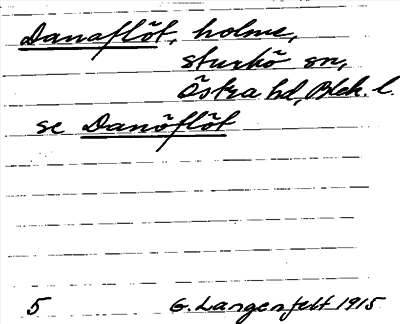 Danaflöt, holme,
Sturkö sn,
Östra hd, Blek. l.
se Danöflöt
5 G. Langenfelt 1915